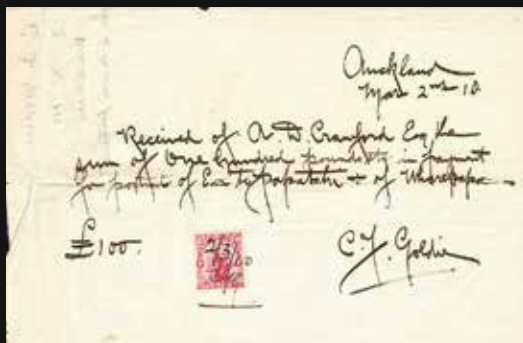 Auckland
Mar 2nd 10
Received of A. D. Cranford Esq the
sum of One hundred pounds in payment
for portrait of Ena Te Papatahi & of Wharepapa
£100.
2/3/10
C. F. Goldie